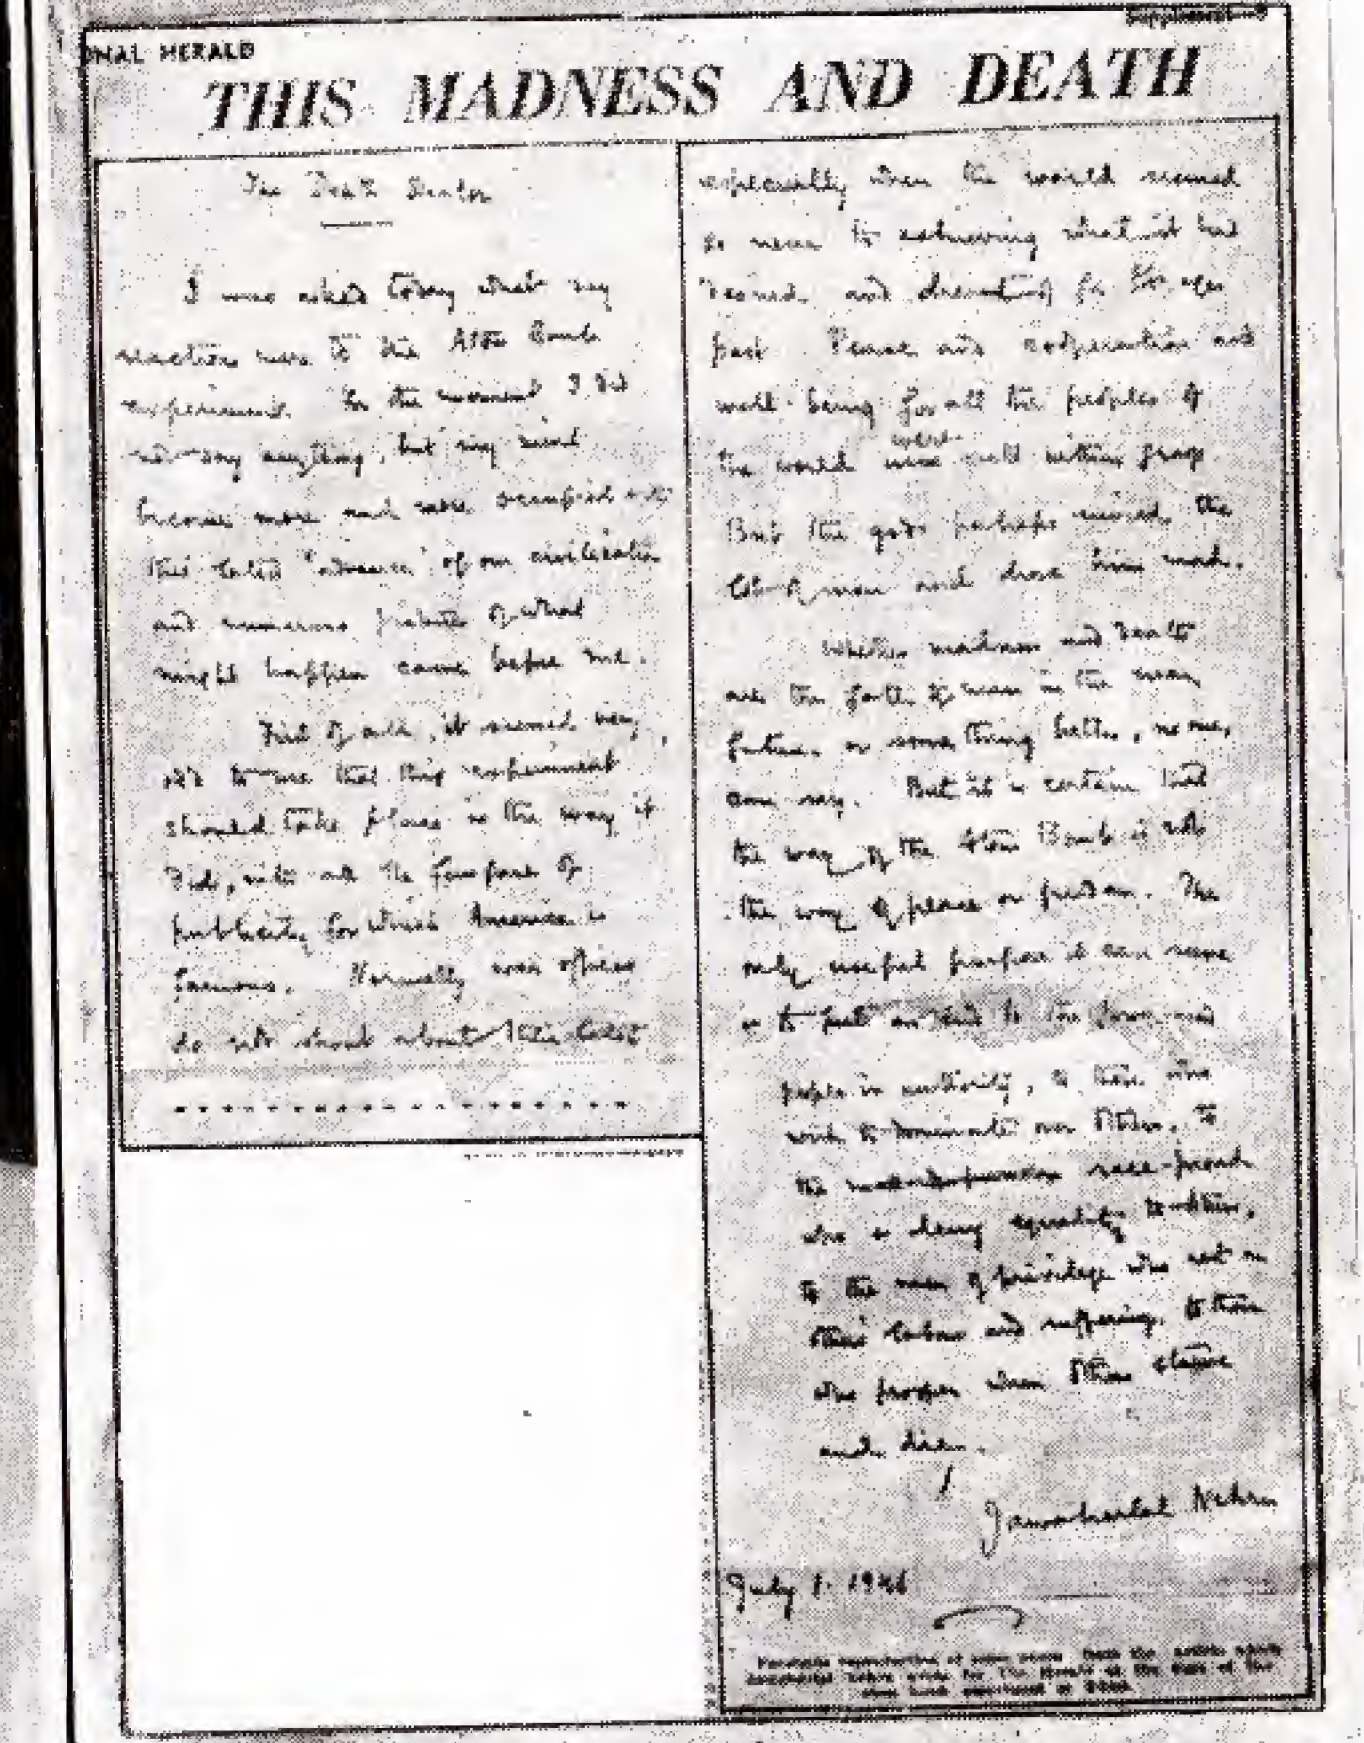 ONAL HERALD
Supplement
THIS MADNESS AND DEATH
The Death Dealer
I was asked today what my
reactions were to the Atom Bomb
experiment. For the moment I did
not say anything, but my mind
became more and more occupied with
this latest "advance" of our civilization
and numerous pictures of what
might happen came before me.
First of all, it seemed very
odd to me that this experiment
should take place in the way it
did, with all the fanfare of
publicity for which America is
famous. Normally war offices
do not shout about their latest
especially when the world seemed
so near to achieving what it had
desired and dreamt of for ages
past. Peace and cooperation and
well-being for all the peoples of
the world were well within grasp.
But the gods perhaps envied the
lot of man and drove him mad.
Whether madness and death
are the fate of man in the near
future, or something better, no one
can say. But it is certain that
the way of the Atom Bomb is not
the way of peace or freedom. The
only useful purpose it can serve
is to put an end to the
people in authority, to those who
wish to dominate over others, to
the race-proud
who deny equality to others,
to the men of privilege who rest on
others' labour and suffering, to those
who prosper when others starve
and die.
Jawaharlal Nehru
July 1. 1946
Facsimile reproduction of some pages from the article which
Jawaharlal Nehru wrote for The Herald at the time of the
atom bomb experiment at Bikini.